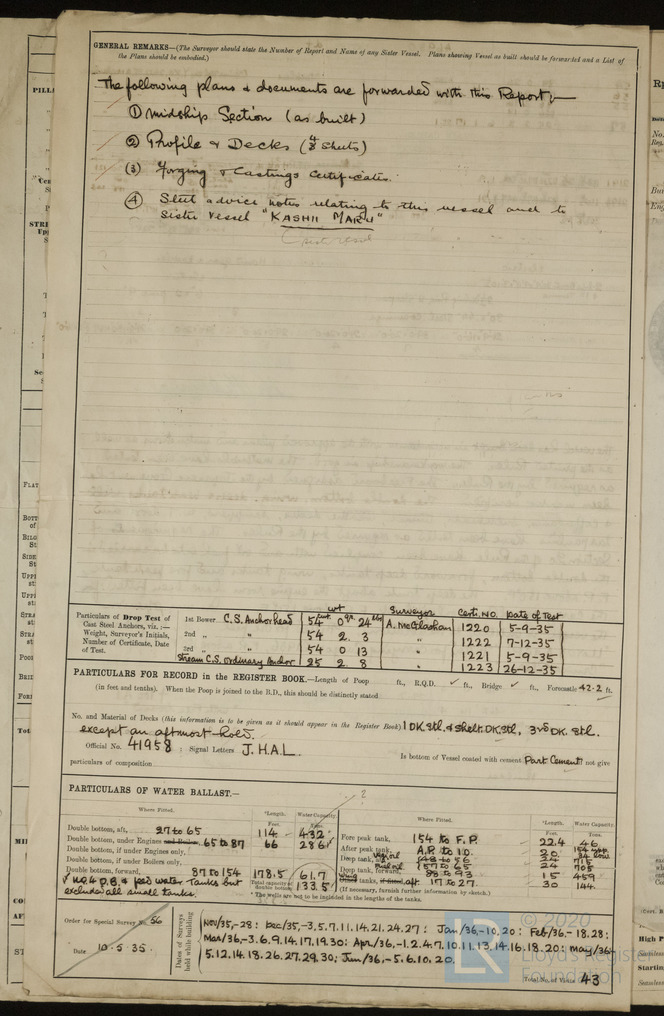 GENERAL REMARKS—(The Surveyor should state the Number of Report and Name of any Sister Vessel. Plans showing Vessel as built should be forwarded and a List of
the Plans should be embodied.)
The following plans & documents are forwarded with this Report:—
① Midship Section (as built)
② Profile & Decks (4 Sheets)
③ Forging & Castings Certificates.
④ Steel advice notes relating to this vessel and to
Sister Vessel "KASHII MARU"
Particulars of Drop Test of
Cast Steel Anchors, viz.:—
Weight, Surveyor's Initials,
Number of Certificate, Date
of Test.
wt Surveyor Certi. No. Date of Test
1st Bower C.S. Anchor head 54 cwt. 0 qr. 24 lbs A. McGlashan 1220 5-9-35
2nd „ „ 54 2 3 „ 1222 7-12-35
3rd „ „ 54 0 13 „ 1221 5-9-35
Stream C.S. ordinary Anchor 25 2 8 „ 1223 26-12-35
PARTICULARS FOR RECORD in the REGISTER BOOK.—Length of Poop ft., R.Q.D. ft., Bridge ft., Forecastle 42.2 ft.
(in feet and tenths). When the Poop is joined to the B.D., this should be distinctly stated
No. and Material of Decks (this information is to be given as it should appear in the Register Book) 1 DK. Stl. & Shelt. DK. Stl, 3rd DK. Stl.
except in aftmost hold.
Official No. 41958 ; Signal Letters J.H.A.L. Is bottom of Vessel coated with cement Part Cement not give
particulars of composition
PARTICULARS OF WATER BALLAST.—
Where Fitted. *Length. Feet. Water Capacity. Tons.
Double bottom, aft, 27 to 65 114 432
Double bottom, under Engines and Boilers, 65 to 87 66 286
Double bottom, if under Engines only,
Double bottom, if under Boilers only,
Double bottom, forward, 87 to 154 178.5 617
Total capacity of double bottom 1335
exclude all small tanks.
The wells are not to be included in the lengths of the tanks.
Where Fitted. *Length. Feet. Water Capacity. Tons.
Fore peak tank, 154 to F.P. 22.4 46
After peak tank, A.P. to 10. 20
Deep tank, 24 715
Deep tank, forward, 157 to 65 24 705
88 to 93 15 459
tanks, aft 17 to 27 30 144
(If necessary, furnish further information by sketch.)
Order for Special Survey No. 56
Date 10.5.35.
Dates of Surveys held while building
Nov/35,-28: Dec/35,-3.5.7.11.14.21.24.27: Jan/36,-10.20: Feb/36,-18.28:
Mar/36,-3.6.9.14.17.19.30: Apr/36,-1.2.4.7.10.11.13.14.16.18.20: May/36,
5.12.14.18.26.27.29.30; Jun/36,-5.6.10.20.
Total No. of Visits 43
© 2020
Lloyd's Register
Foundation
LR